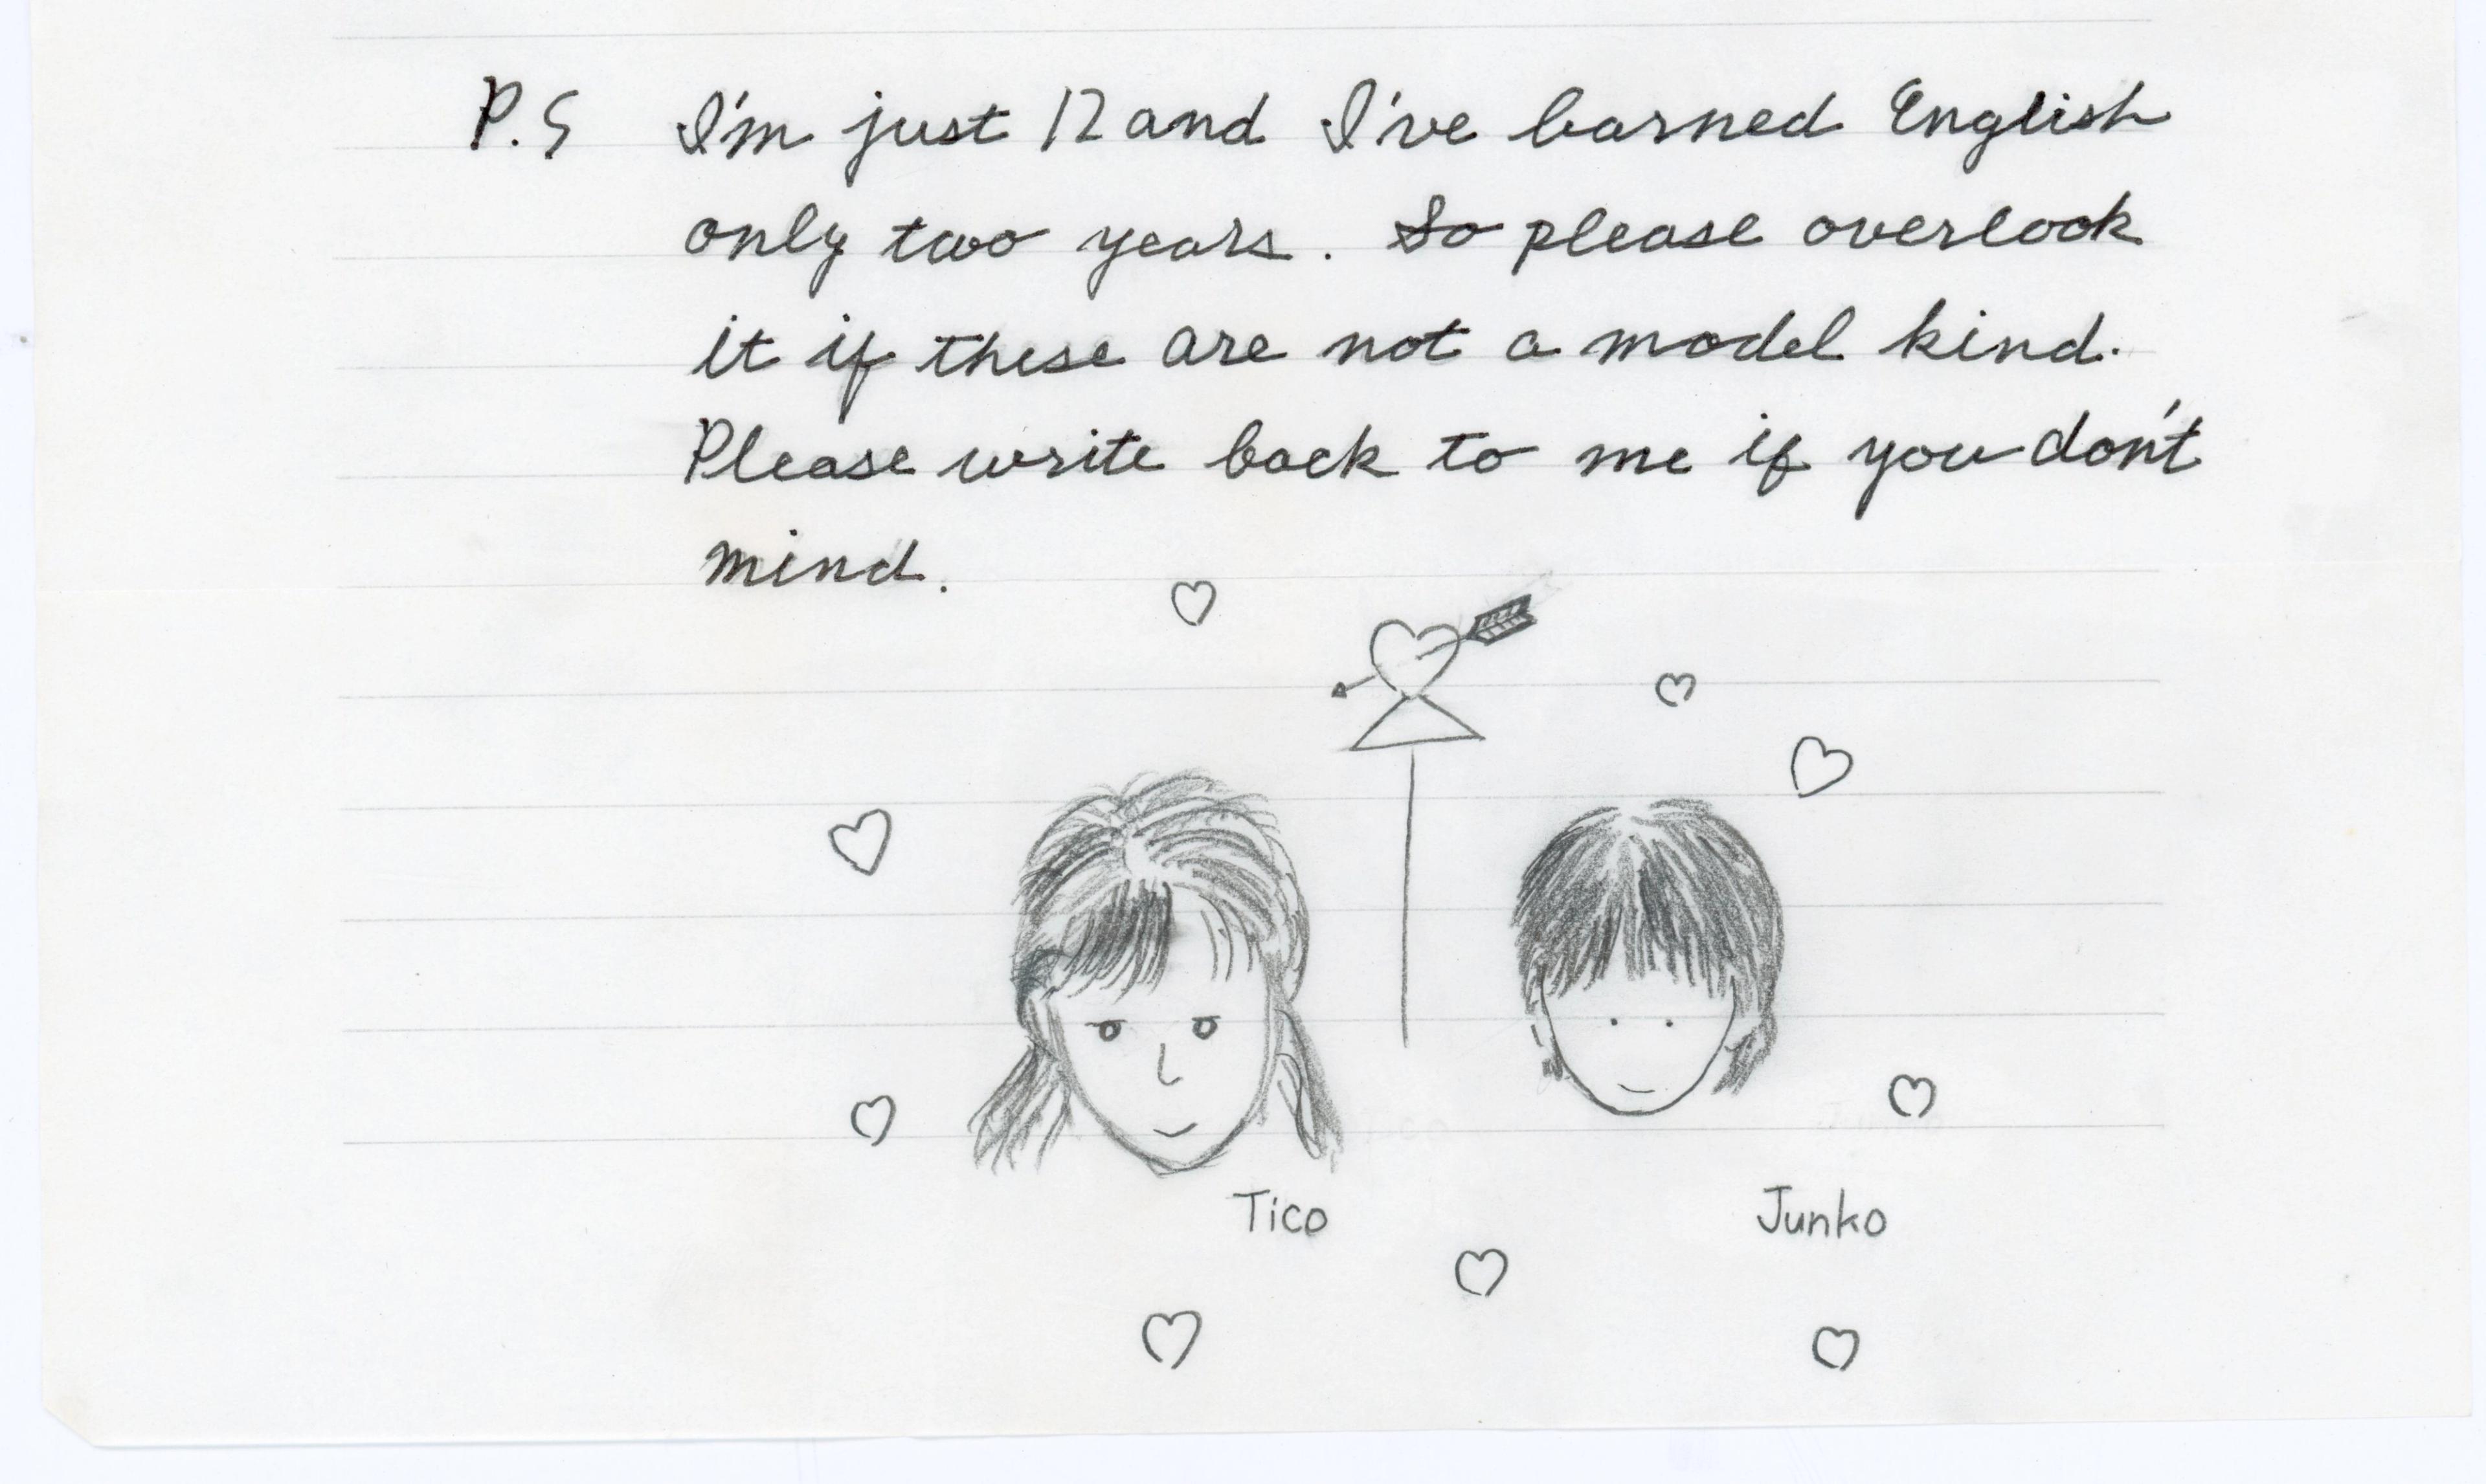 P.S I'm just 12 and I've learned English
only two years. So please overlook
it if these are not a model kind.
Please write back to me if you don't
mind.
Tico
Junko